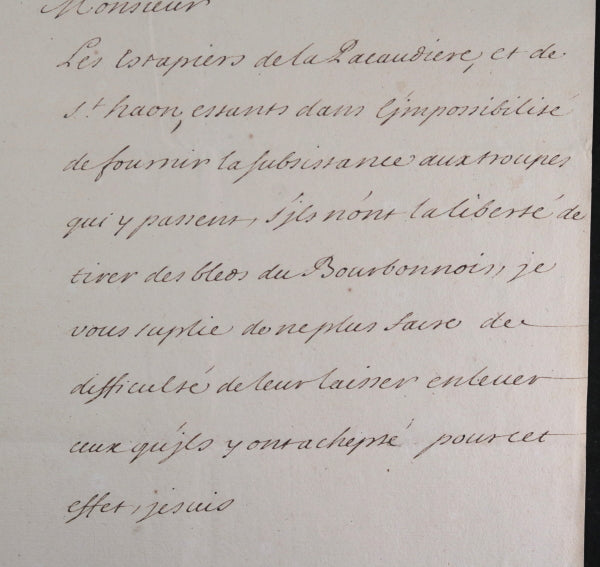 Monsieur
Les Estapiers de la Pacaudiere, et de
s.t haon, estants dans l'jmpossibilité
de fournir la subsistance aux troupes
qui y passent, s'jls n'ont la liberté de
tirer des bleds du Bourbonnois, je
vous suplie de ne plus faire de
difficulté de leur laisser enlever
ceux qu'jls y ont achepté pour cet
effet, je suis